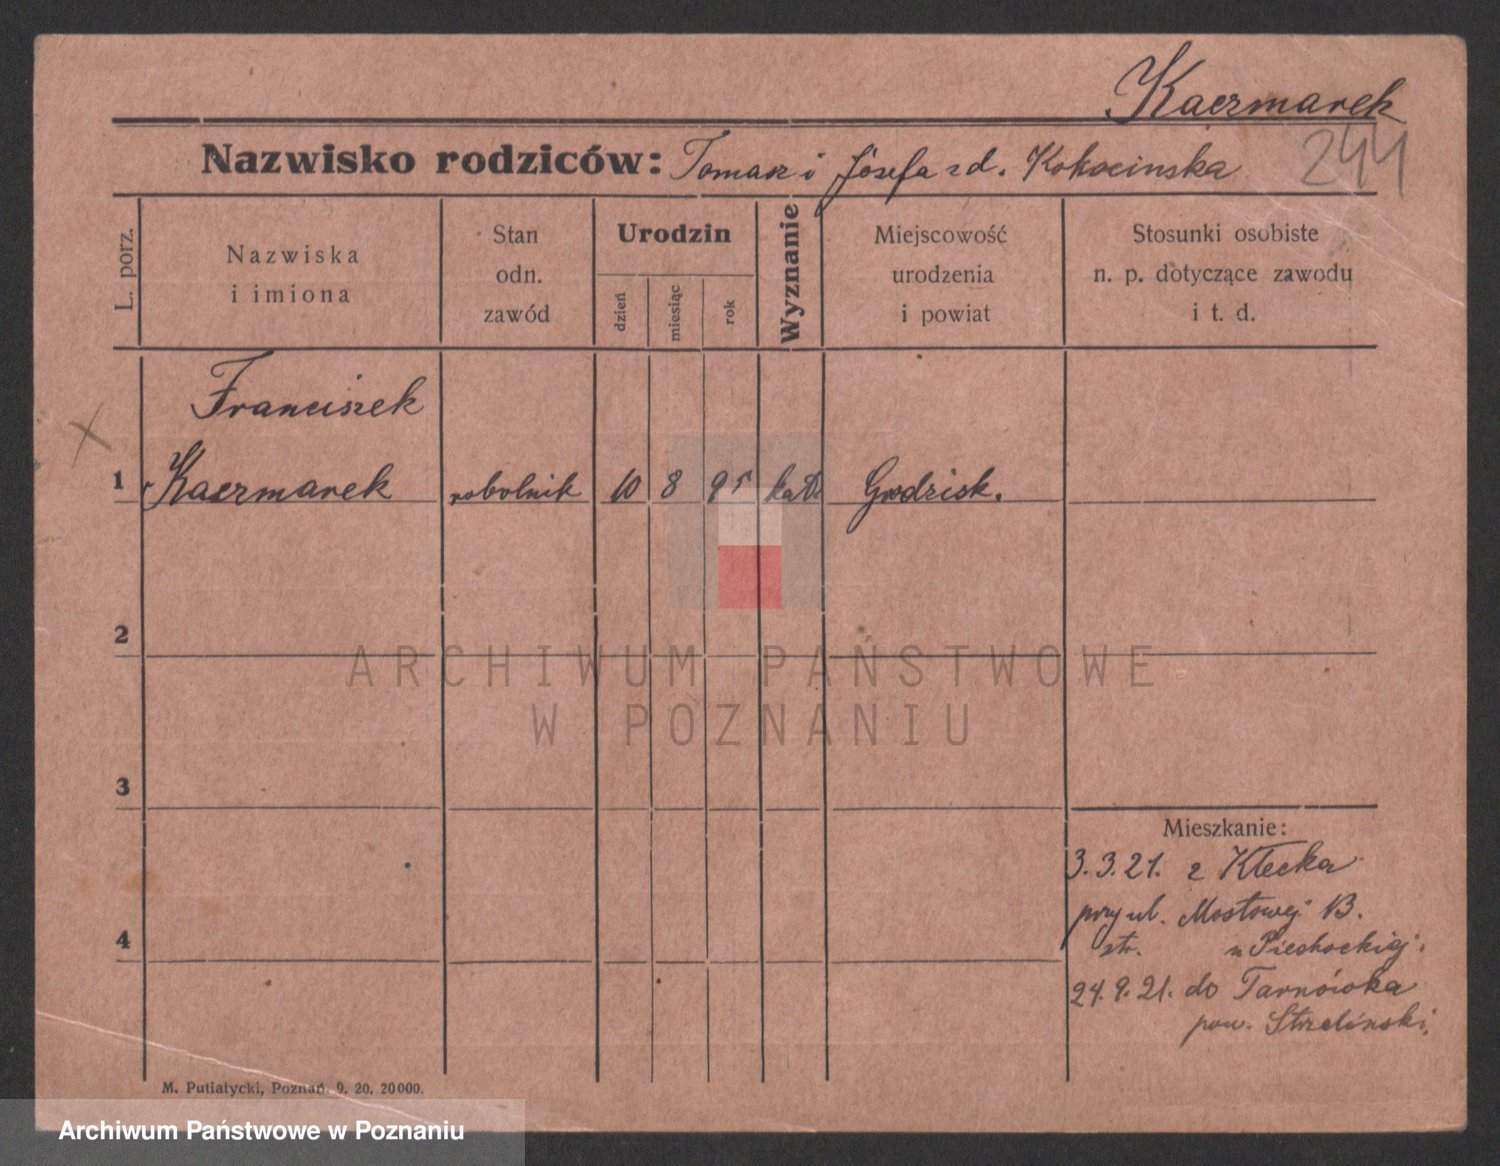 Kaczmarek
244
Nazwisko rodziców: Tomasz i Józefa zd. Kokocinska
L. porz.
Nazwiska
i imiona
Stan
odn.
zawód
Urodzin
dzień
miesiąc
rok
Wyznanie
Miejscowość
urodzenia
i powiat
Stosunki osobiste
n. p. dotyczące zawodu
i t. d.
Franciszek
1 Kaczmarek robotnik 10 8 95 kat. Grodzisk.
2
ARCHIWUM PAŃSTWOWE
W POZNANIU
3
Mieszkanie:
3.3.21. z Kłecka
przy ul. Mostowej 13.
str. u Piechockiej.
4
24.9.21. do Tarnówka
pow. Strzeliński.
M. Putiatycki, Poznań. 9. 20. 20000.
Archiwum Państwowe w Poznaniu